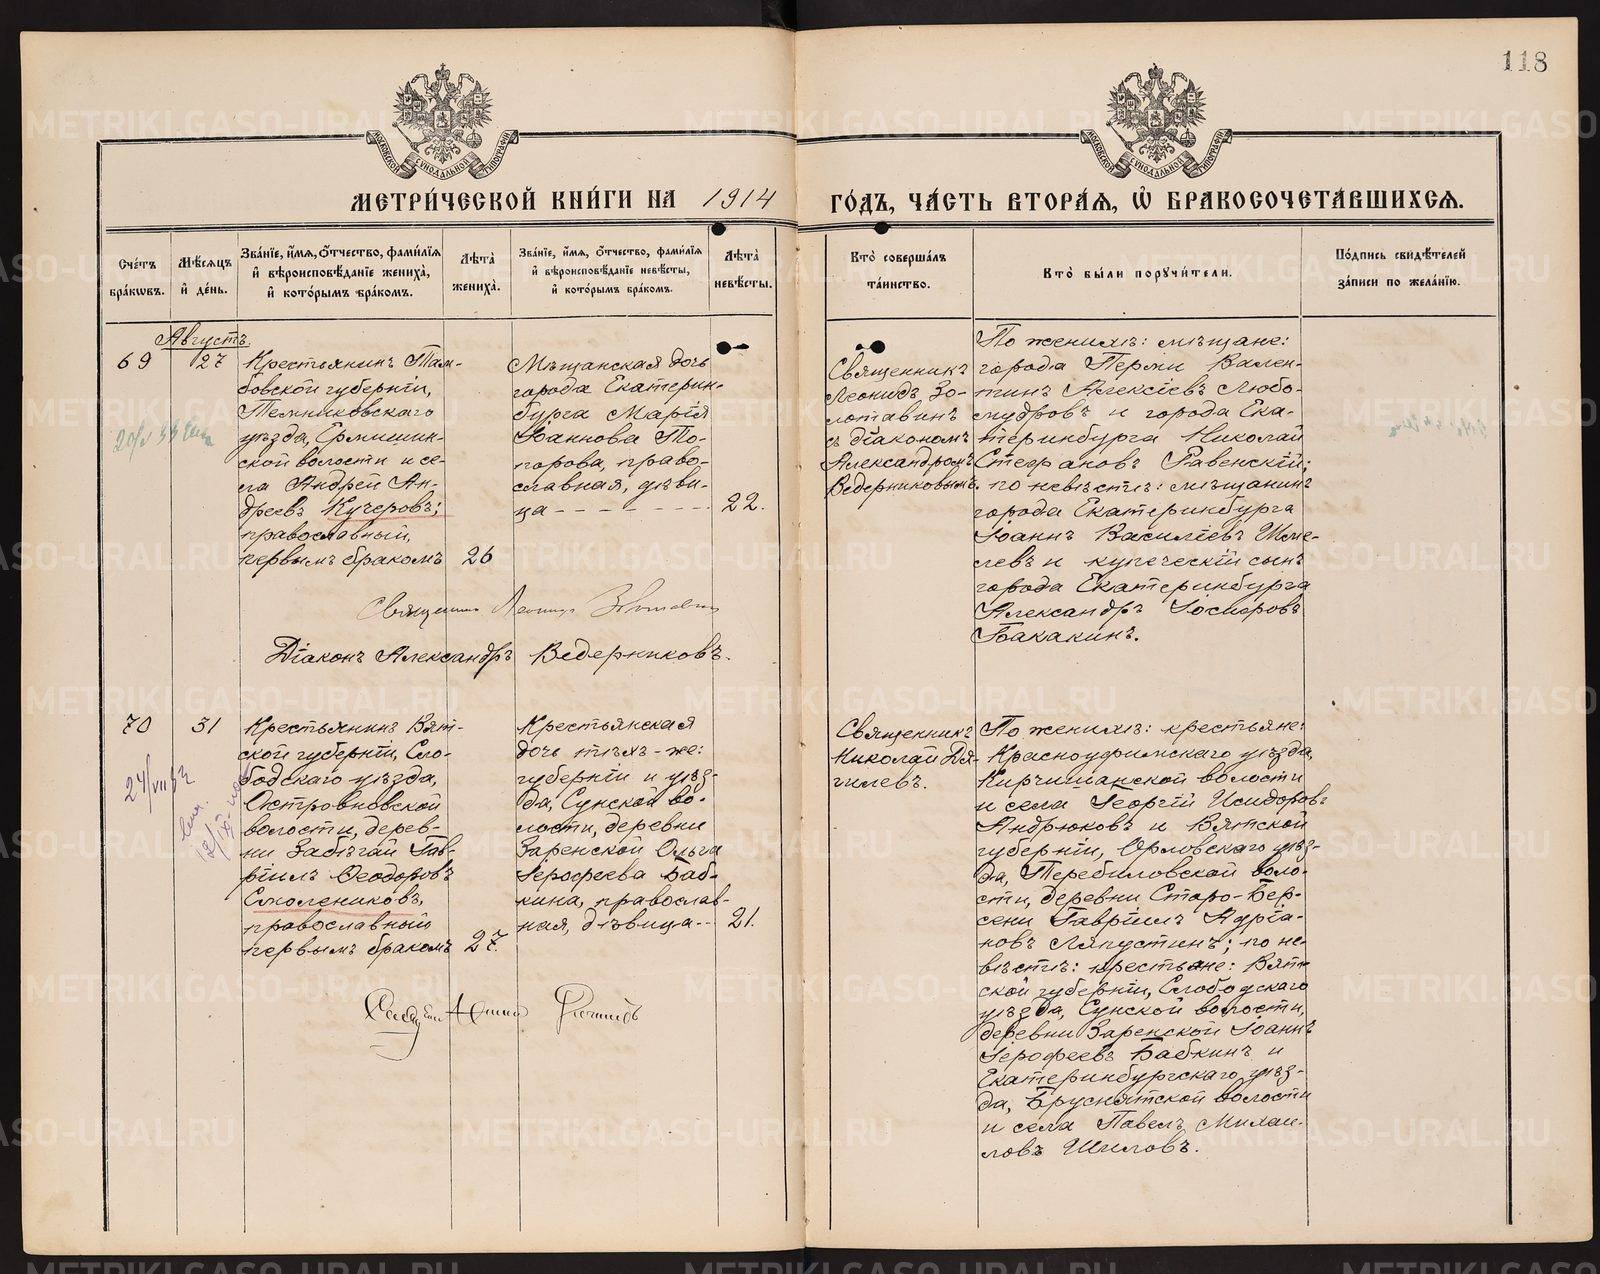 118
МЕТРИ́ЧЕСКОЙ КНИ́ГИ НА 1914 ГО́ДЪ, ЧА́СТЬ ВТОРА́Я, Ѡ БРАКОСОЧЕТА́ВШИХСЯ.
Сче́тъ бра́кѡвъ.
Мѣ́сяцъ и де́нь.
Зва́нїе, и́мя, о́тчество, фами́лїя и вѣроисповѣ́данїе жениха̀, и кото́рымъ бра́комъ.
Лѣта̀ жениха̀.
Зва́нїе, и́мя, о́тчество, фами́лїя и вѣроисповѣ́данїе невѣ́сты, и кото́рымъ бра́комъ.
Лѣта̀ невѣ́сты.
Кто̀ соверша́лъ та́инство.
Кто̀ бы́ли порꙋчи́тели.
По́дпись свидѣ́телей за́писи по жела́нїю.
Августъ.
69
27
Крестьянинъ Там-
бовской губернiи,
Темниковскаго
уѣзда, Ермишин-
ской волости и се-
ла Андрей Ан-
дреевъ Кучеровъ;
православный,
первымъ бракомъ
26
Мѣщанская дочь
города Екатерин-
бурга Марiя
Iоаннова То-
порова, право-
славная, дѣви-
ца
22.
Священникъ
Леонидъ Зо-
лотавинъ
съ дiакономъ
Александромъ
Ведерниковымъ.
По женихѣ: мѣщане:
города Перми Вален-
тинъ Алексiевъ Любо-
мудровъ и города Ека-
теринбурга Николай
Стефановъ Равенскiй;
по невѣстѣ: мѣщанинъ
города Екатеринбурга
Iоаннъ Василiевъ Шме-
левъ и купеческiй сынъ
города Екатеринбурга
Александръ Iосифовъ
Бакакинъ.
Священникъ Леонидъ Золотавинъ
Дiаконъ Александръ Ведерниковъ.
70
31
Крестьянинъ Вят-
ской губернiи, Сло-
бодскаго уѣзда,
Островновской
волости, дерев-
ни Забѣгай Гав-
рiилъ Ѳеодоровъ
Смолениковъ,
православный
первымъ бракомъ
27.
Крестьянская
дочь тѣхъ-же:
губернiи и уѣз-
да, Сунской во-
лости, деревни
Заренской Ольга
Iерофеева Баб-
кина, православ-
ная, дѣвица
21.
Священникъ
Николай Дя-
гилевъ.
По женихѣ: крестьяне:
Красноуфимскаго уѣзда,
Киргишанской волости
и села Георгiй Исидоровъ
Андрюковъ и Вятской
губернiи, Орловскаго уѣз-
да, Перебиловской воло-
сти, деревни Старо-Бер-
сени Гаврiилъ Адрiа-
новъ Ляпустинъ; по не-
вѣстѣ: крестьяне: Вят-
ской губернiи, Слободскаго
уѣзда, Сунской волости,
деревни Заренской Iоаннъ
Iерофеевъ Бабкинъ и
Екатеринбургскаго уѣз-
да, Бруснятской волости
и села Павелъ Михаи-
ловъ Шиловъ.
METRIKI.GASO-URAL.RU